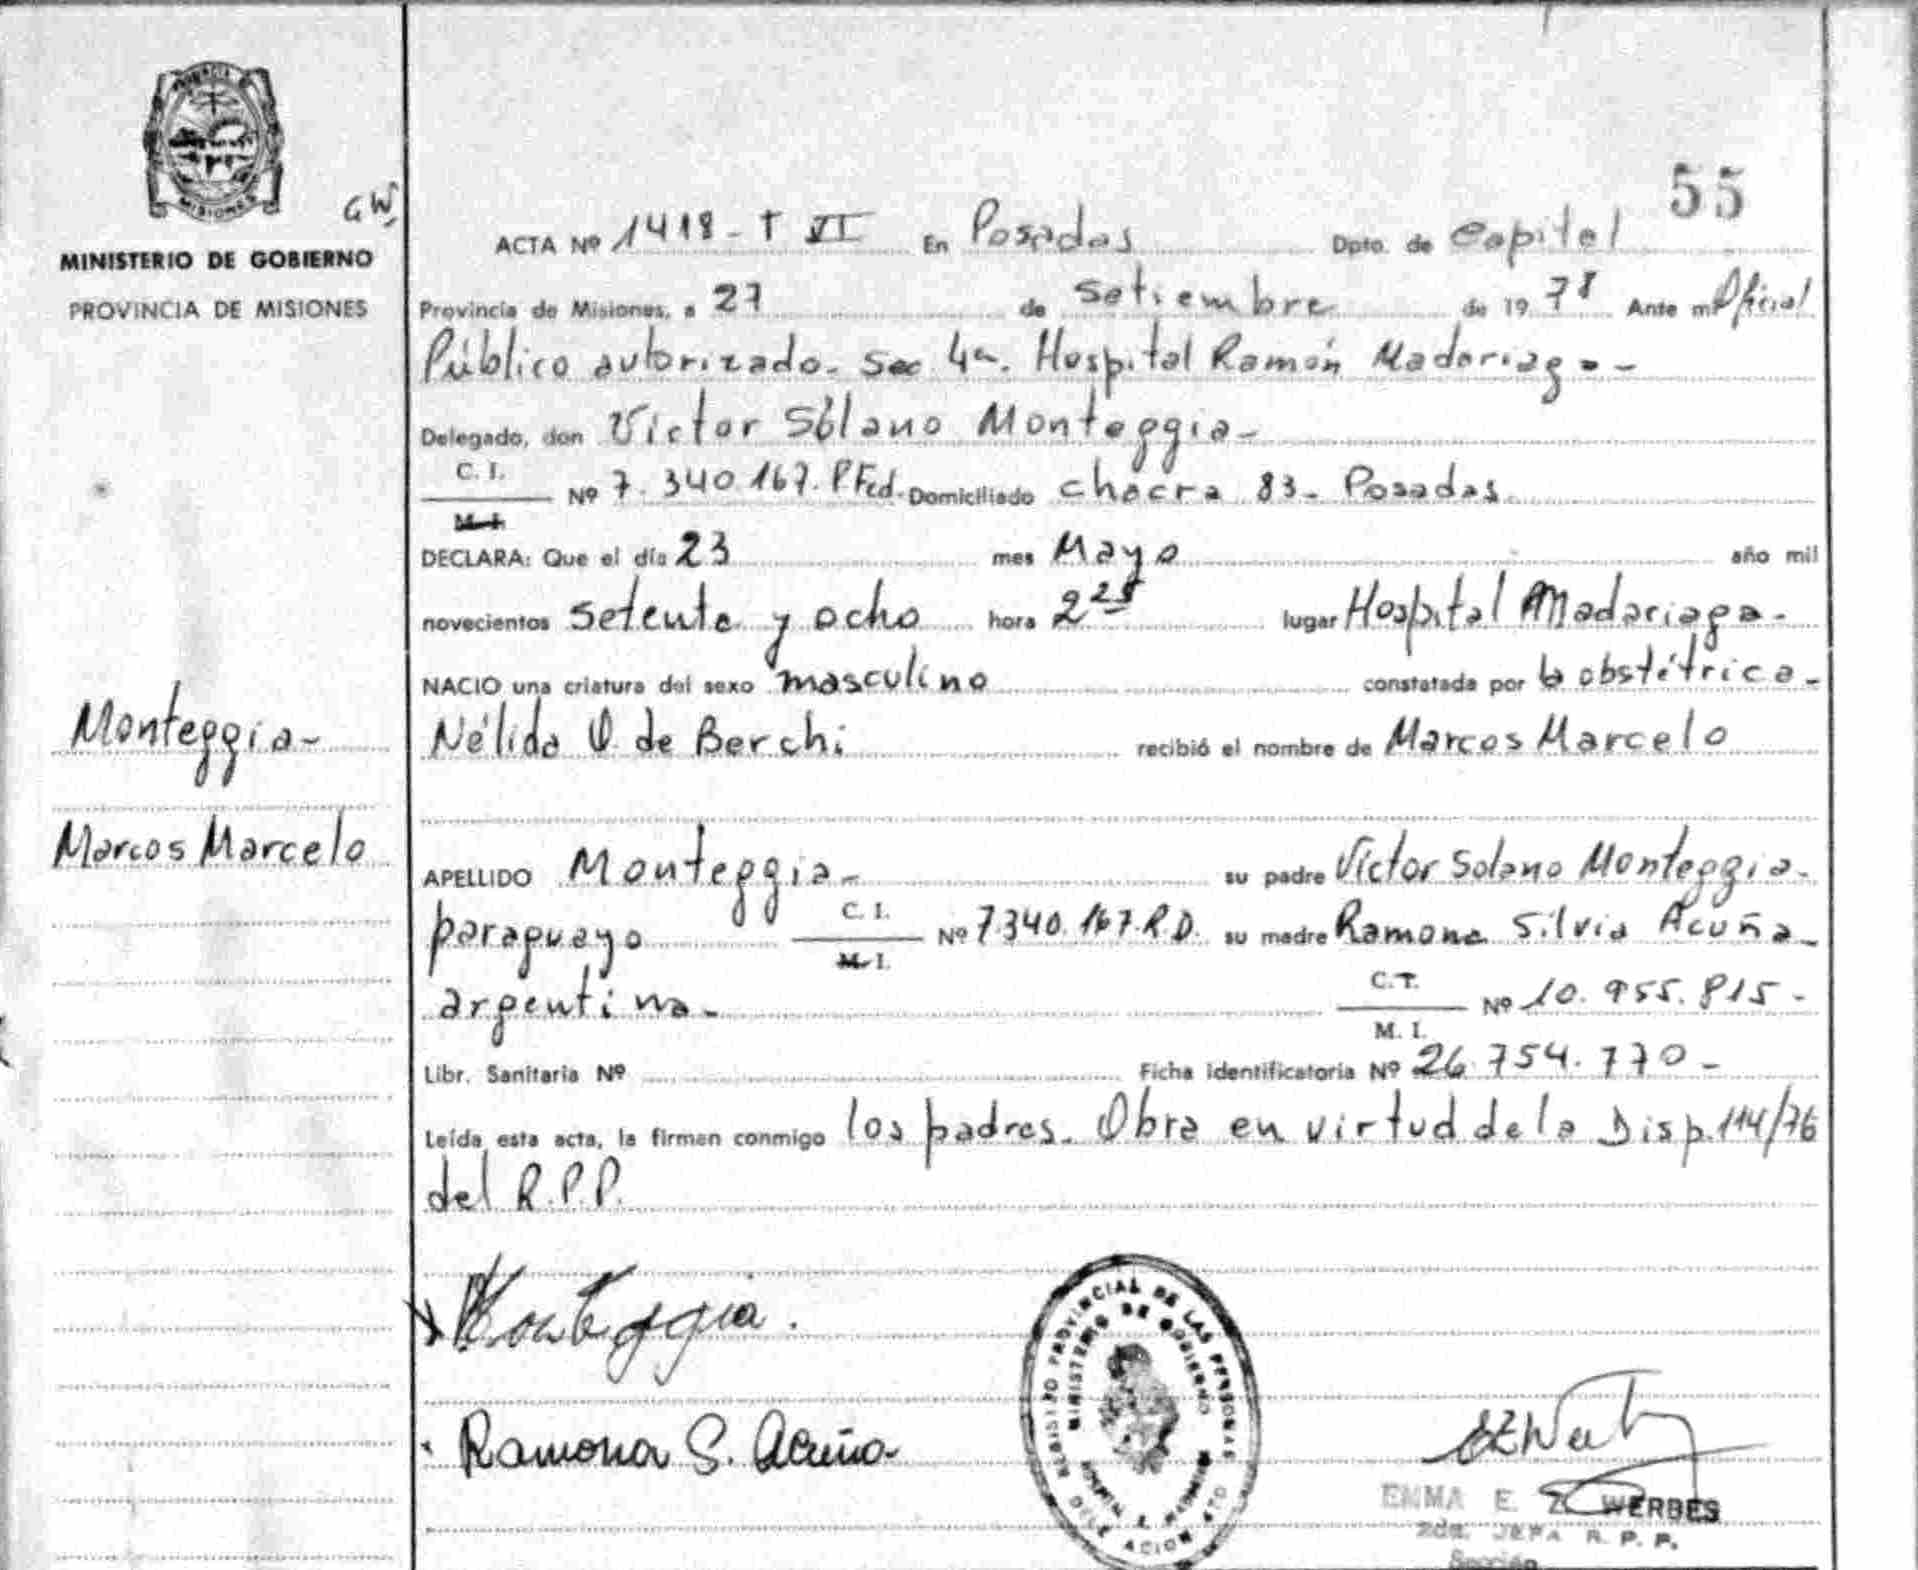 MISIONES
GW
MINISTERIO DE GOBIERNO
PROVINCIA DE MISIONES
Monteggia-
Marcos Marcelo
55
ACTA Nº 1418 - T VI En Posadas Dpto. de Capital
Provincia de Misiones, a 27 de Setiembre de 1978 Ante mi Oficial
Público autorizado. Sec 4ª. Hospital Ramón Madariaga -
Delegado, don Víctor Sólano Monteggia-
C. I.
Nº 7.340.167. P Fed. Domiciliado chacra 83 - Posadas.
M. I.
DECLARA: Que el día 23 mes Mayo año mil
novecientos setenta y ocho hora 2 25 lugar Hospital Madariaga-
NACIO una criatura del sexo masculino constatada por la obstétrica-
Nélida O. de Berchi recibió el nombre de Marcos Marcelo
APELLIDO Monteggia- su padre Víctor Solano Monteggia-
paraguayo C. I. Nº 7.340.167. su madre Ramona Silvia Acuña-
M. I.
argentina- C. I. Nº 10.955.815-
M. I.
Libr. Sanitaria Nº Ficha identificatoria Nº 26.754.770-
Leída esta acta, la firman conmigo los padres. Obra en virtud de la Disp. 114/76
del R.P.P.
Monteggia.
Ramona S. Acuña
REGISTRO PROVINCIAL DE LAS PERSONAS
MINISTERIO DE GOBIERNO
EMMA E. Z. WERBES
2da. JEFA R. P. P.
Sección